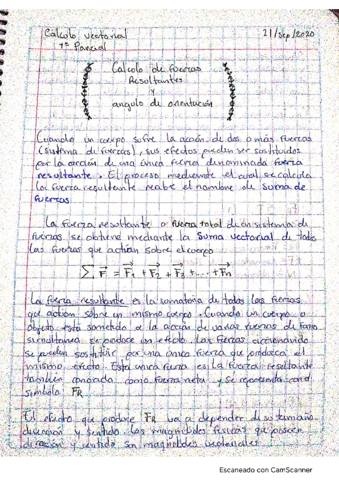 Cálculo vectorial
1er Parcial
21/sep/2020
Calculo de fuerzas
Resultantes
y
angulo de orientación
Cuando un cuerpo sufre la acción de dos o más fuerzas
(sistema de fuerzas), sus efectos pueden ser sustituidos
por la acción de una única fuerza denominada fuerza
resultante. El proceso mediante el cual se calcula
la fuerza resultante recibe el nombre de suma de
fuerzas
La fuerza resultante o fuerza total de un sistema de
fuerzas se obtiene mediante la suma vectorial de todas
las fuerzas que actúan sobre el cuerpo
∑ F = F1 + F2 + F3 + ... + Fn
La fuerza resultante es la sumatoria de todas las fuerzas
que actúan sobre un mismo cuerpo. Cuando un cuerpo u
objeto está sometido a la acción de varias fuerzas de forma
simultanea se produce un efecto. Las fuerzas accionando
se pueden sustituir por una única fuerza que produzca el
mismo efecto. Esta única fuerza es la fuerza resultante
también conocida como fuerza neta y se representa con el
símbolo FR
El efecto que produce FR va a depender de su tamaño
dirección y sentido. Las magnitudes físicas que poseen
dirección y sentido son magnitudes vectoriales
Escaneado con CamScanner